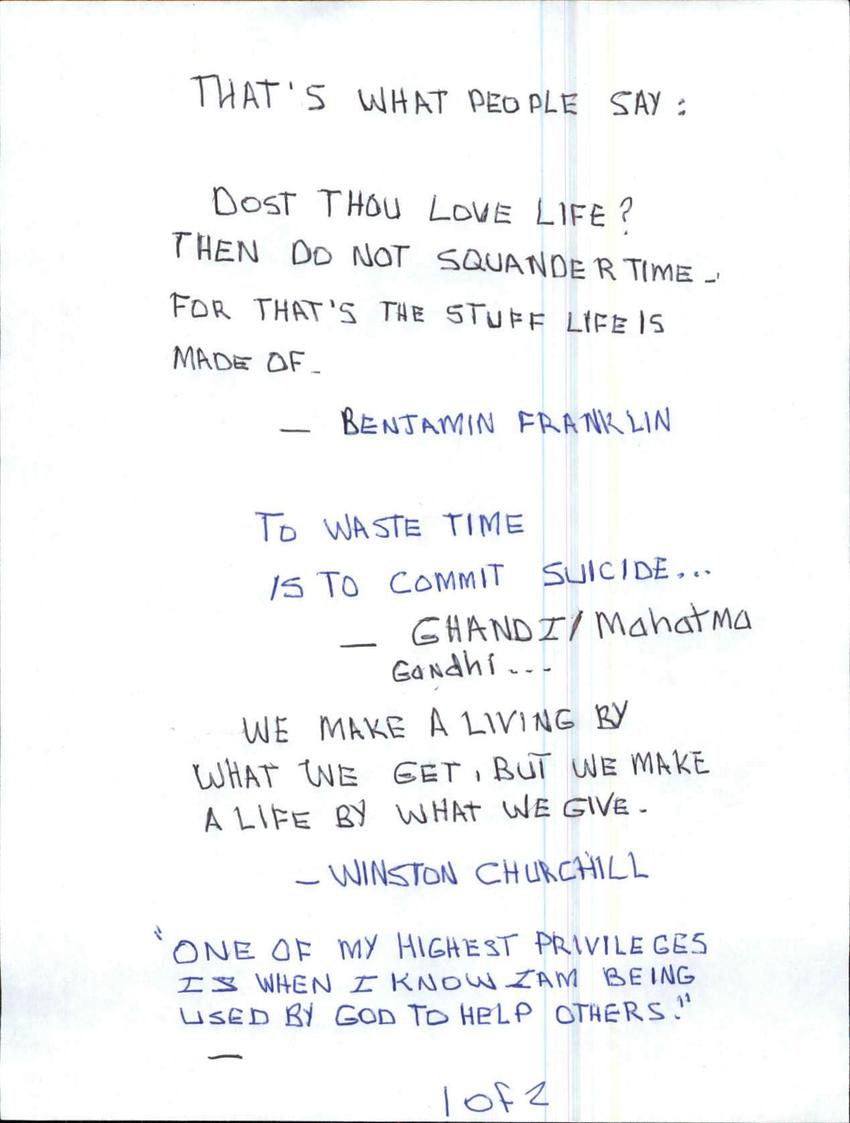 THAT'S WHAT PEOPLE SAY :
DOST THOU LOVE LIFE?
THEN DO NOT SQUANDER TIME -
FOR THAT'S THE STUFF LIFE IS
MADE OF_
— BENJAMIN FRANKLIN
TO WASTE TIME
IS TO COMMIT SUICIDE...
— GHANDI/ Mahatma
Gandhi ...
WE MAKE A LIVING BY
WHAT WE GET, BUT WE MAKE
A LIFE BY WHAT WE GIVE -
- WINSTON CHURCHILL
"ONE OF MY HIGHEST PRIVILEGES
IS WHEN I KNOW I AM BEING
USED BY GOD TO HELP OTHERS."
—
1 of 2